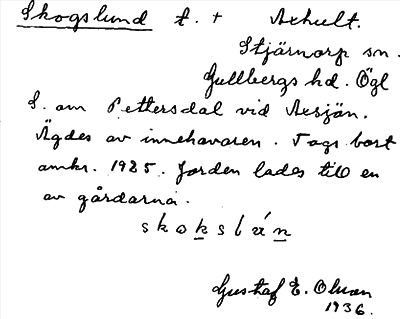 Skogslund t. + Axhult.
Stjärnorp sn.
Gullbergs hd. Ögl
S. om Pettersdal vid Axsjön.
Ägdes av innehavaren. Togs bort
omkr. 1925. Jorden lades till en
av gårdarna.
skokslán
Gustaf E. Olson
1936.